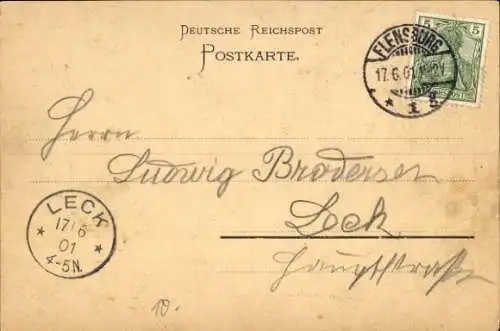 DEUTSCHE REICHSPOST
POSTKARTE.
5 5
FLENSBURG
17.6.01
* 1 g
Herrn
Ludwig Brodersen
Leck.
Hauptstraße
LECK
* 17/6 *
01
4-5N.
10.